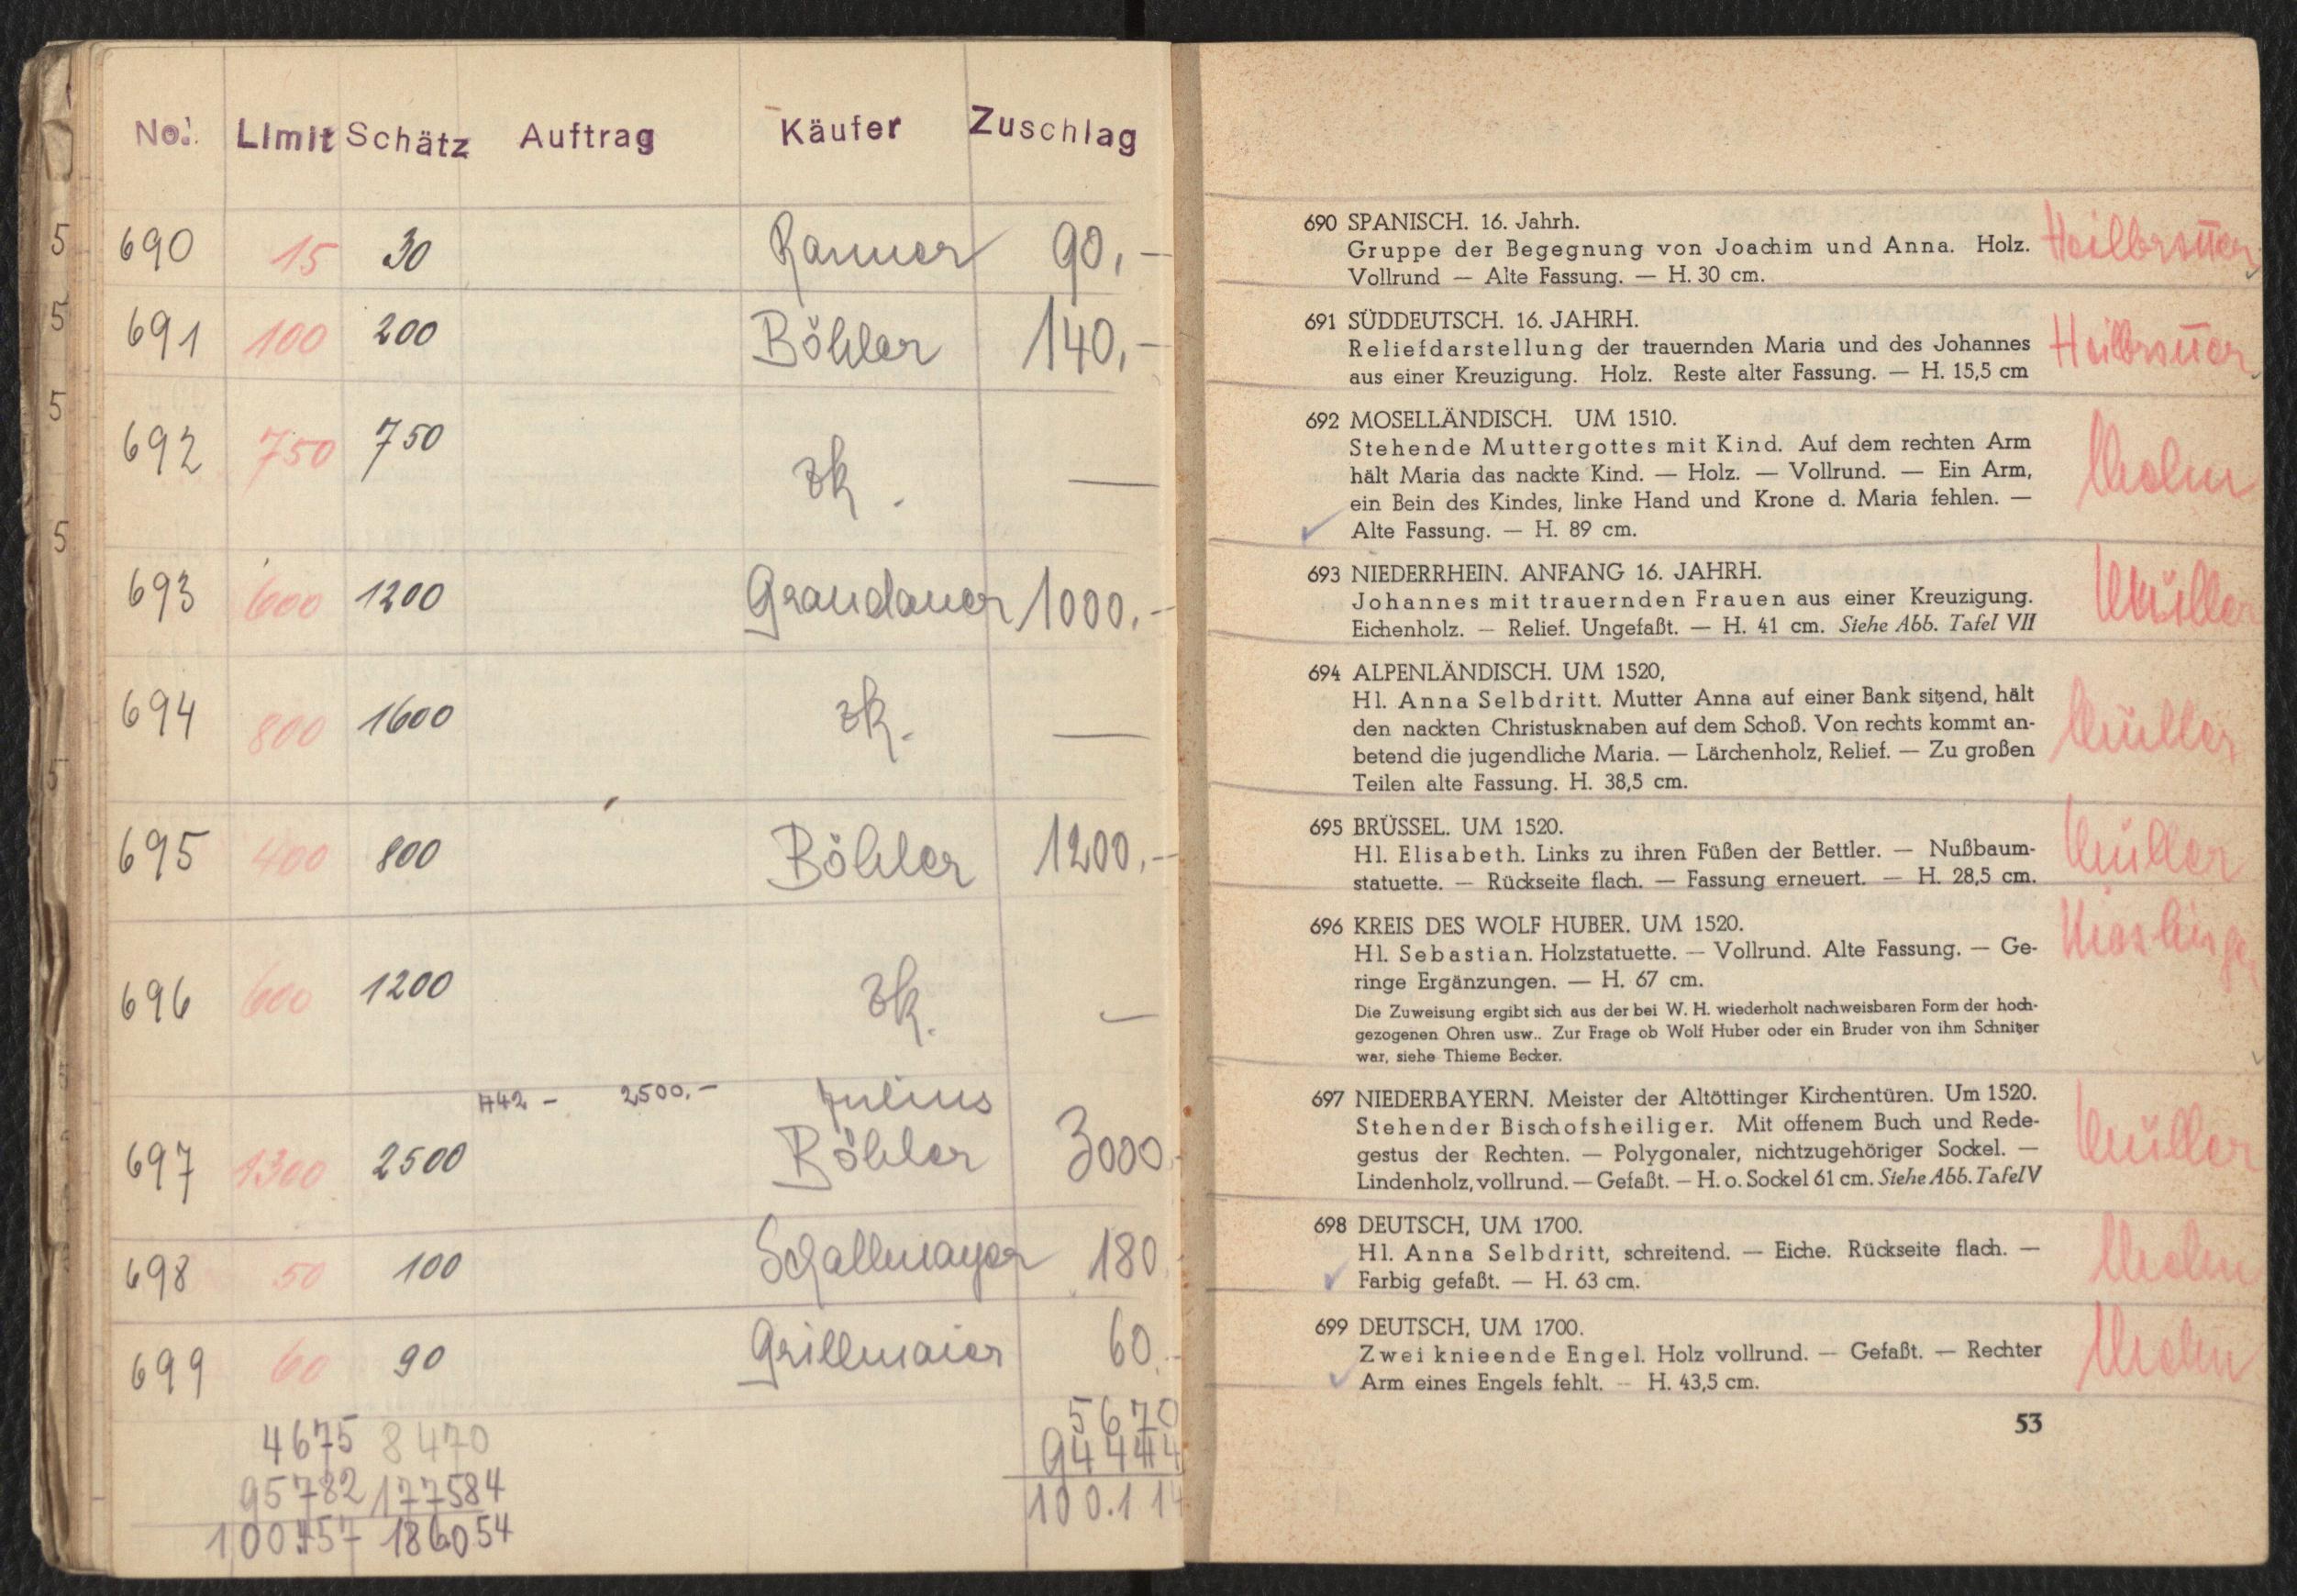 No. Limit Schätz Auftrag Käufer Zuschlag
690 15 30 90,-
691 100 200 Böhler 140,-
692 750 750 zk. —
693 600 1200 Grandauer 1000.-
694 800 1600 zk. —
695 400 800 Böhler 1200.-
696 600 1200 zk. —
442 - 2500.- Julius
697 1300 2500 Böhler 3000
698 50 100 Schallmayer 180
699 60 90 Grillmaier 60.-
4675 8470 5670
95782 177584 94444
100457 186054 100.114
5
5
5
5
5
690 SPANISCH. 16. Jahrh.
Gruppe der Begegnung von Joachim und Anna. Holz.
Vollrund — Alte Fassung. — H. 30 cm.
691 SÜDDEUTSCH. 16. JAHRH.
Reliefdarstellung der trauernden Maria und des Johannes
aus einer Kreuzigung. Holz. Reste alter Fassung. — H. 15,5 cm
692 MOSELLÄNDISCH. UM 1510.
Stehende Muttergottes mit Kind. Auf dem rechten Arm
hält Maria das nackte Kind. — Holz. — Vollrund. — Ein Arm,
ein Bein des Kindes, linke Hand und Krone d. Maria fehlen. —
Alte Fassung. — H. 89 cm.
693 NIEDERRHEIN. ANFANG 16. JAHRH. Müller
Johannes mit trauernden Frauen aus einer Kreuzigung.
Eichenholz. — Relief. Ungefaßt. — H. 41 cm. Siehe Abb. Tafel VII
694 ALPENLÄNDISCH. UM 1520,
Hl. Anna Selbdritt. Mutter Anna auf einer Bank sitzend, hält
den nackten Christusknaben auf dem Schoß. Von rechts kommt an- Müller
betend die jugendliche Maria. — Lärchenholz, Relief. — Zu großen
Teilen alte Fassung. H. 38,5 cm.
695 BRÜSSEL. UM 1520.
Hl. Elisabeth. Links zu ihren Füßen der Bettler. — Nußbaum- Müller
statuette. — Rückseite flach. — Fassung erneuert. — H. 28,5 cm.
696 KREIS DES WOLF HUBER. UM 1520.
Hl. Sebastian. Holzstatuette. — Vollrund. Alte Fassung. — Ge-
ringe Ergänzungen. — H. 67 cm.
Die Zuweisung ergibt sich aus der bei W. H. wiederholt nachweisbaren Form der hoch-
gezogenen Ohren usw.. Zur Frage ob Wolf Huber oder ein Bruder von ihm Schnitzer
war, siehe Thieme Becker.
697 NIEDERBAYERN. Meister der Altöttinger Kirchentüren. Um 1520.
Stehender Bischofsheiliger. Mit offenem Buch und Rede- Müller
gestus der Rechten. — Polygonaler, nichtzugehöriger Sockel. —
Lindenholz, vollrund. — Gefaßt. — H. o. Sockel 61 cm. Siehe Abb. Tafel V
698 DEUTSCH, UM 1700.
Hl. Anna Selbdritt, schreitend. — Eiche. Rückseite flach. —
Farbig gefaßt. — H. 63 cm.
699 DEUTSCH, UM 1700.
Zwei knieende Engel. Holz vollrund. — Gefaßt. — Rechter
Arm eines Engels fehlt. — H. 43,5 cm.
53